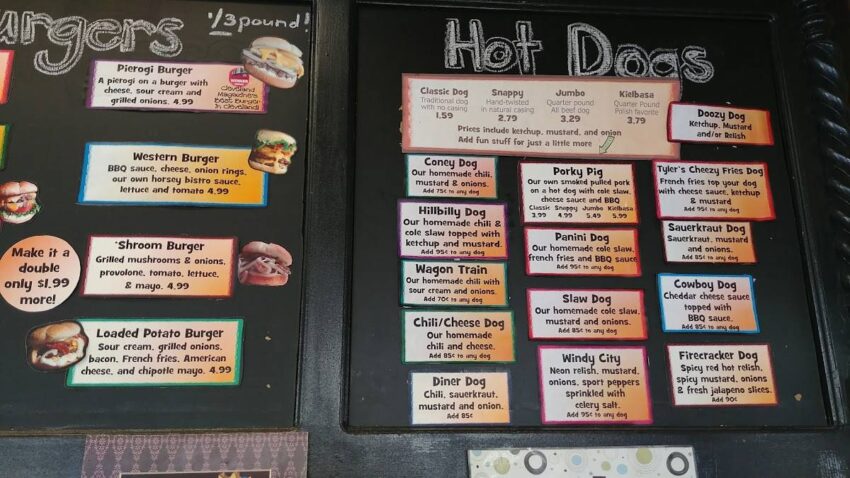 urgers
1/3 pound!
Pierogi Burger
A pierogi on a burger with
cheese, sour cream and
grilled onions. 4.99
WINNER
Cleveland
Magazine's
Best Burger
In Cleveland!
Western Burger
BBQ sauce, cheese, onion rings,
our own horsey bistro sauce,
lettuce and tomato 4.99
Make it a
double
only $1.99
more!
'Shroom Burger
Grilled mushrooms & onions,
provolone, tomato, lettuce,
& mayo. 4.99
Loaded Potato Burger
Sour cream, grilled onions,
bacon, French fries, American
cheese, and chipotle mayo. 4.99
Hot Dogs
Classic Dog
Traditional dog
with no casing
1.59
Snappy
Hand-twisted
in natural casing
2.79
Jumbo
Quarter pound
All beef dog
3.29
Kielbasa
Quarter Pound
Polish favorite
3.79
Prices include ketchup, mustard, and onion
Add fun stuff for just a little more
Doozy Dog
Ketchup, Mustard
and/or Relish
Coney Dog
Our homemade chili,
mustard & onions.
Add 75¢ to any dog
Hillbilly Dog
Our homemade chili &
cole slaw topped with
ketchup and mustard.
Add 95¢ to any dog
Wagon Train
Our homemade chili with
sour cream and onions.
Add 70¢ to any dog
Chili/Cheese Dog
Our homemade
chili and cheese.
Add 85¢ to any dog
Diner Dog
Chili, sauerkraut,
mustard and onion.
Add 85¢
Porky Pig
Our own smoked pulled pork
on a hot dog with cole slaw,
cheese sauce and BBQ
Classic Snappy Jumbo Kielbasa
3.99 4.99 5.49 5.99
Panini Dog
Our homemade cole slaw,
french fries and BBQ sauce
Add 95¢ to any dog
Slaw Dog
Our homemade cole slaw,
mustard and onions.
Add 85¢ to any dog
Windy City
Neon relish, mustard,
onions, sport peppers
sprinkled with
celery salt.
Add 95¢ to any dog
Tyler's Cheezy Fries Dog
French fries top your dog
with cheese sauce, ketchup
& mustard
Add 95¢ to any dog
Sauerkraut Dog
Sauerkraut, mustard
and onions.
Add 85¢ to any dog
Cowboy Dog
Cheddar cheese sauce
topped with
BBQ sauce.
Add 85¢ to any dog
Firecracker Dog
Spicy red hot relish,
spicy mustard, onions
& fresh jalapeno slices.
Add 90¢